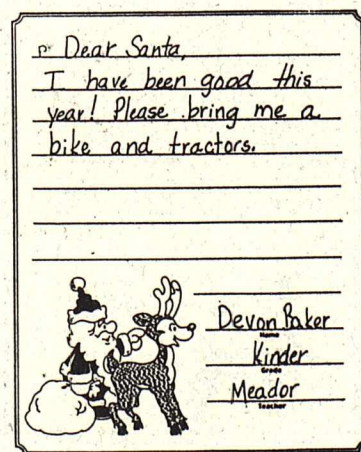 Dear Santa,
I have been good this
year! Please bring me a
bike and tractors.
Devon Baker
Name
Kinder
Grade
Meador
Teacher